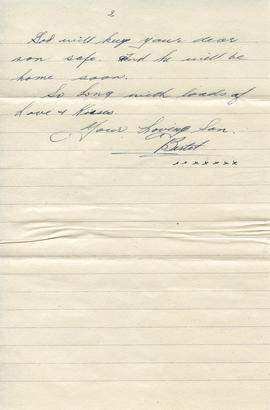 2
God will keep your dear
son safe. And he will be
home soon.
So Long with loads of
Love & Kisses.
Your Loving Son.
x x x x x x x